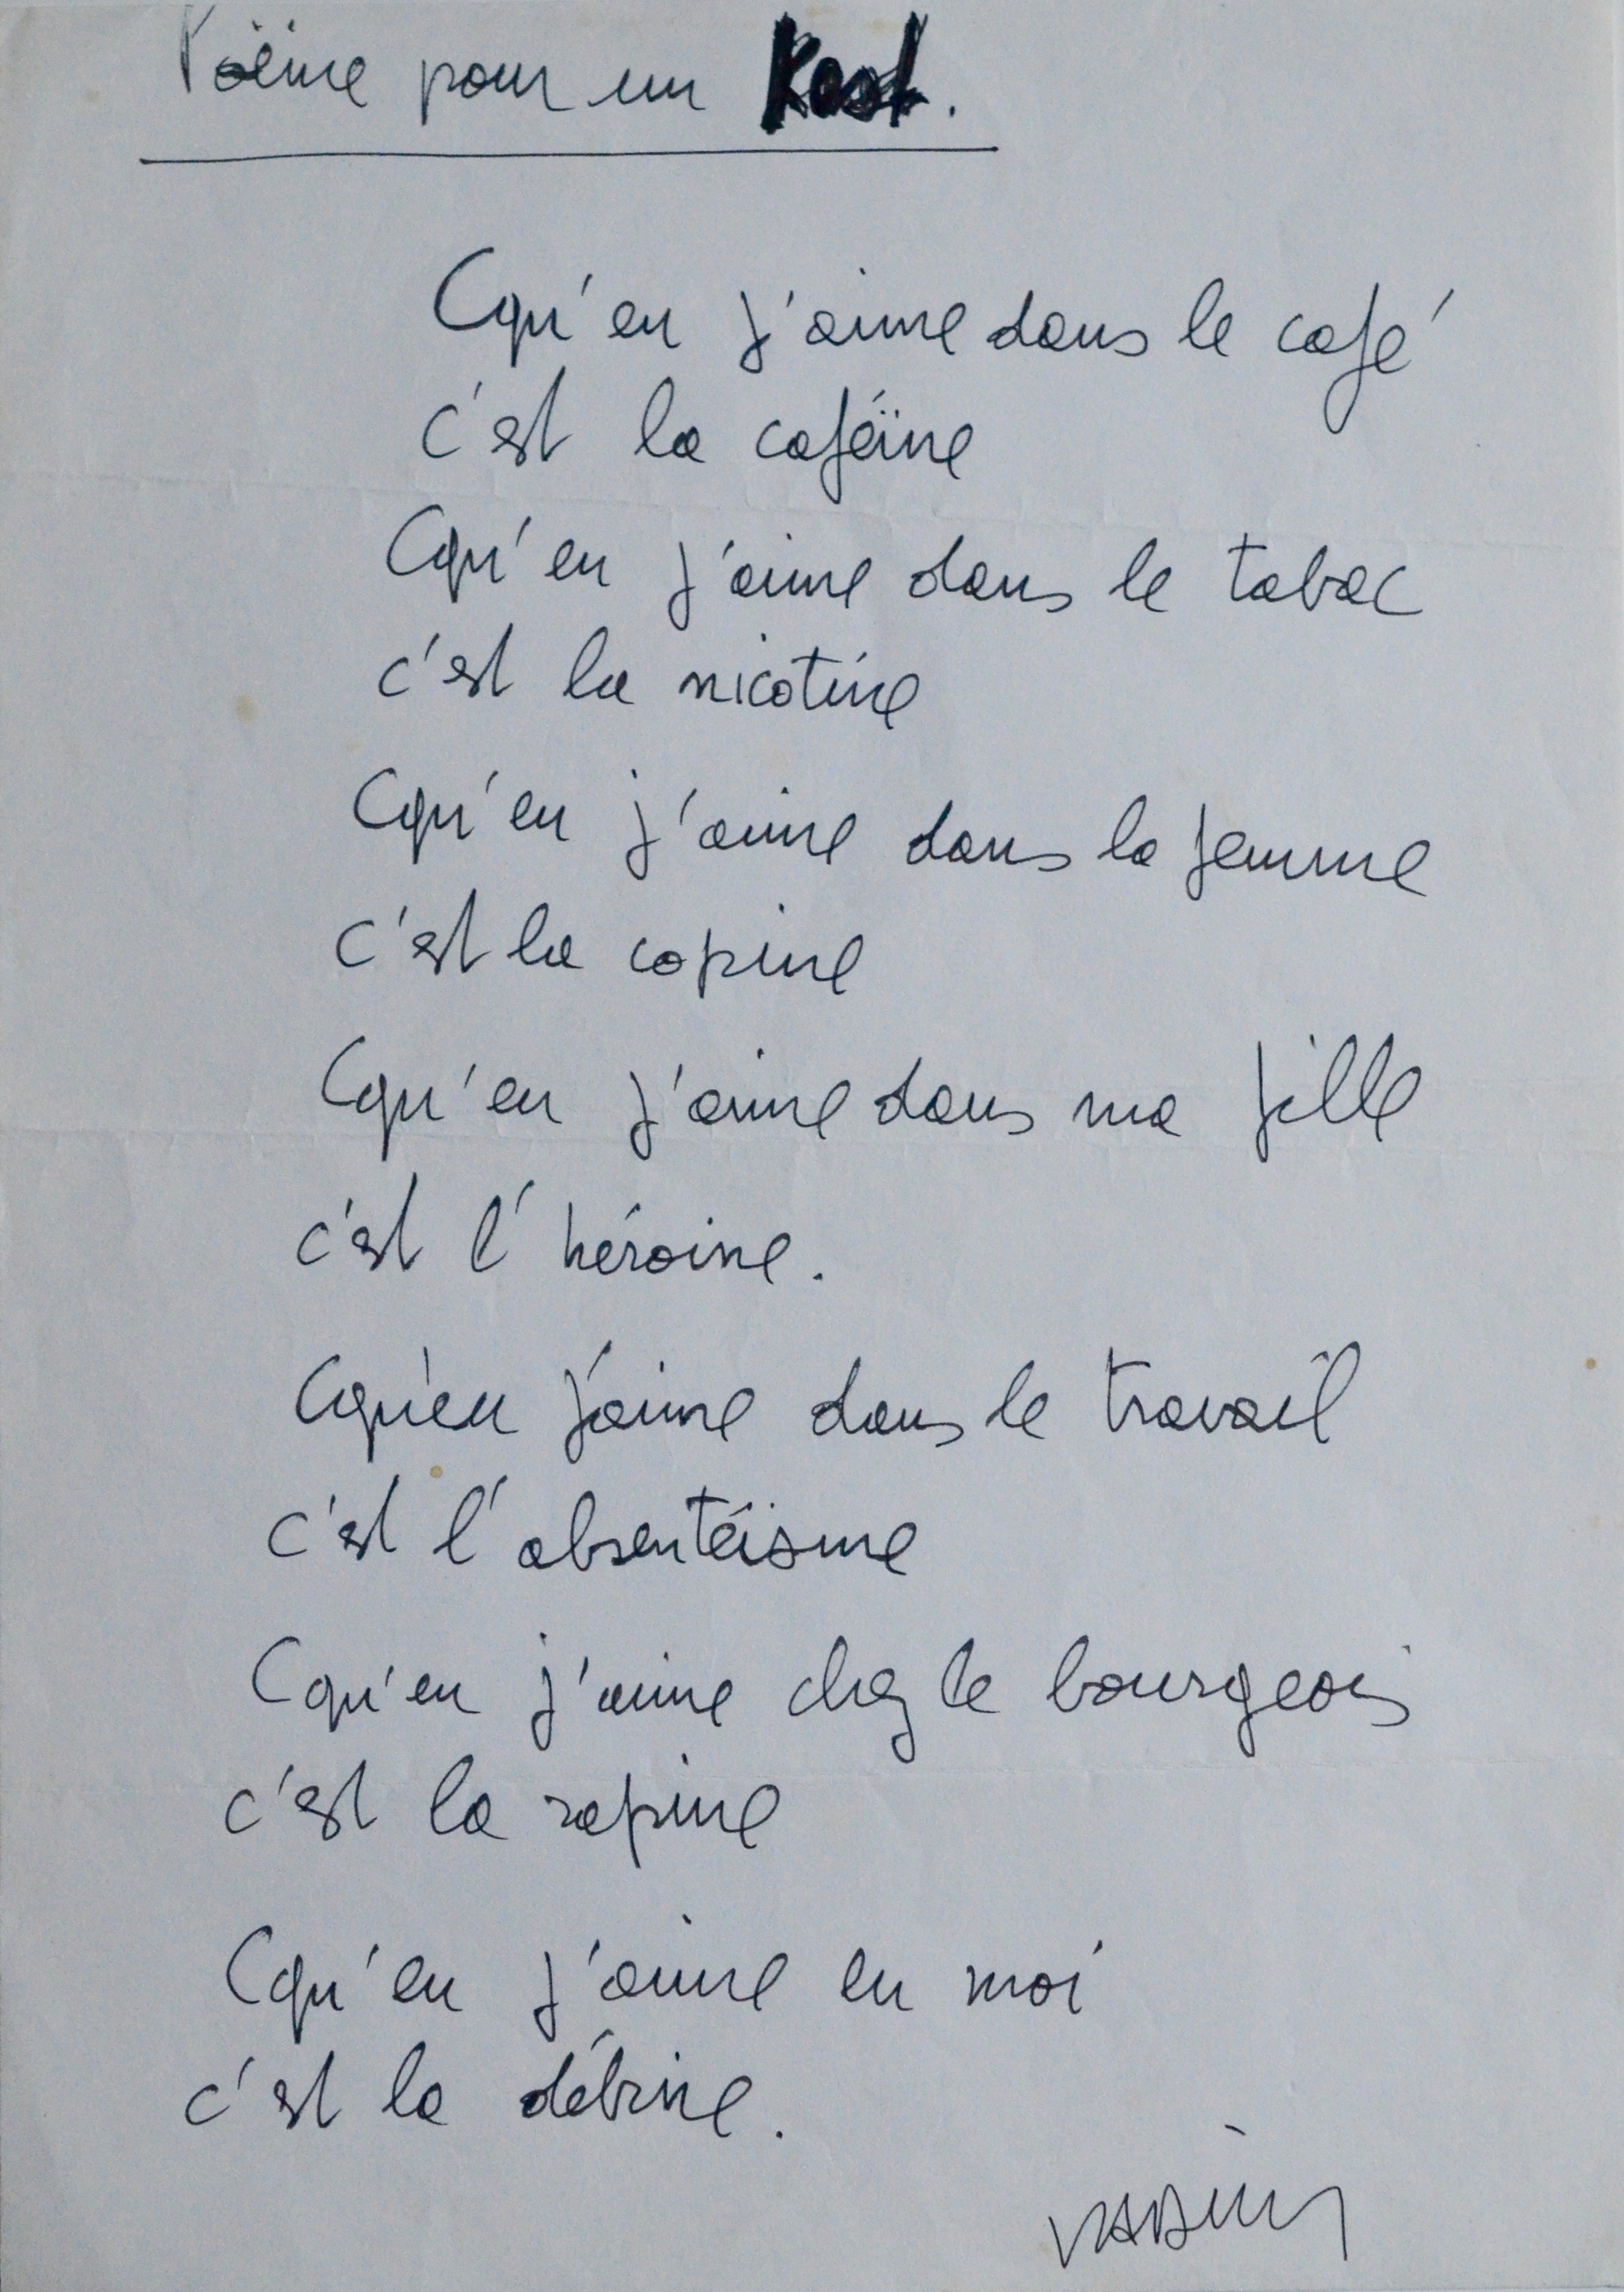 Poëme pour un
Cqu'en j'aime dans le café
c'est la caféine
Cqu'en j'aime dans le tabac
c'est la nicotine
Cqu'en j'aime dans la femme
c'est la copine
Cqu'en j'aime dans ma fille
c'est l'héroine.
Cqu'en j'aime dans le travail
c'est l'absentéisme
Cqu'en j'aime chez le bourgeois
c'est la rapine
Cqu'en j'aime en moi
c'est la débine.